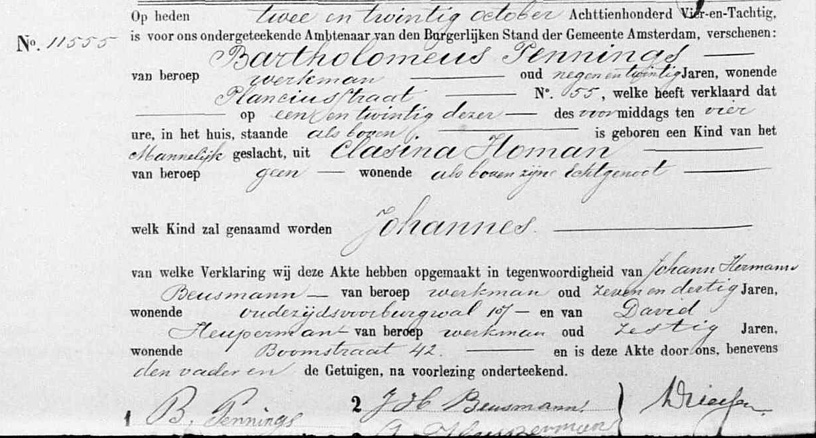 Op heden twee en twintig october Achttienhonderd Vier-en-Tachtig,
No. 11555 is voor ons ondergeteekende Ambtenaar van den Burgerlijken Stand der Gemeente Amsterdam, verschenen:
Bartholomeus Pennings
van beroep werkman oud negen en twintig Jaren, wonende
Planciusstraat No. 55, welke heeft verklaard dat
op een en twintig dezer des voormiddags ten vier
ure, in het huis, staande als boven is geboren een Kind van het
Mannelijk geslacht, uit Clasina Homan
van beroep geen wonende als boven zijne Echtgenoot
welk Kind zal genaamd worden Johannes.
van welke Verklaring wij deze Akte hebben opgemaakt in tegenwoordigheid van Johann Hermann
Beusmann van beroep werkman oud zeven en dertig Jaren,
wonende oudezijdsvoorburgwal 107 en van David
Heupermant van beroep werkman oud zestig Jaren,
wonende Boomstraat 42. en is deze Akte door ons, benevens
den vader en de Getuigen, na voorlezing onderteekend.
1 B. Pennings 2 J H Beusmann